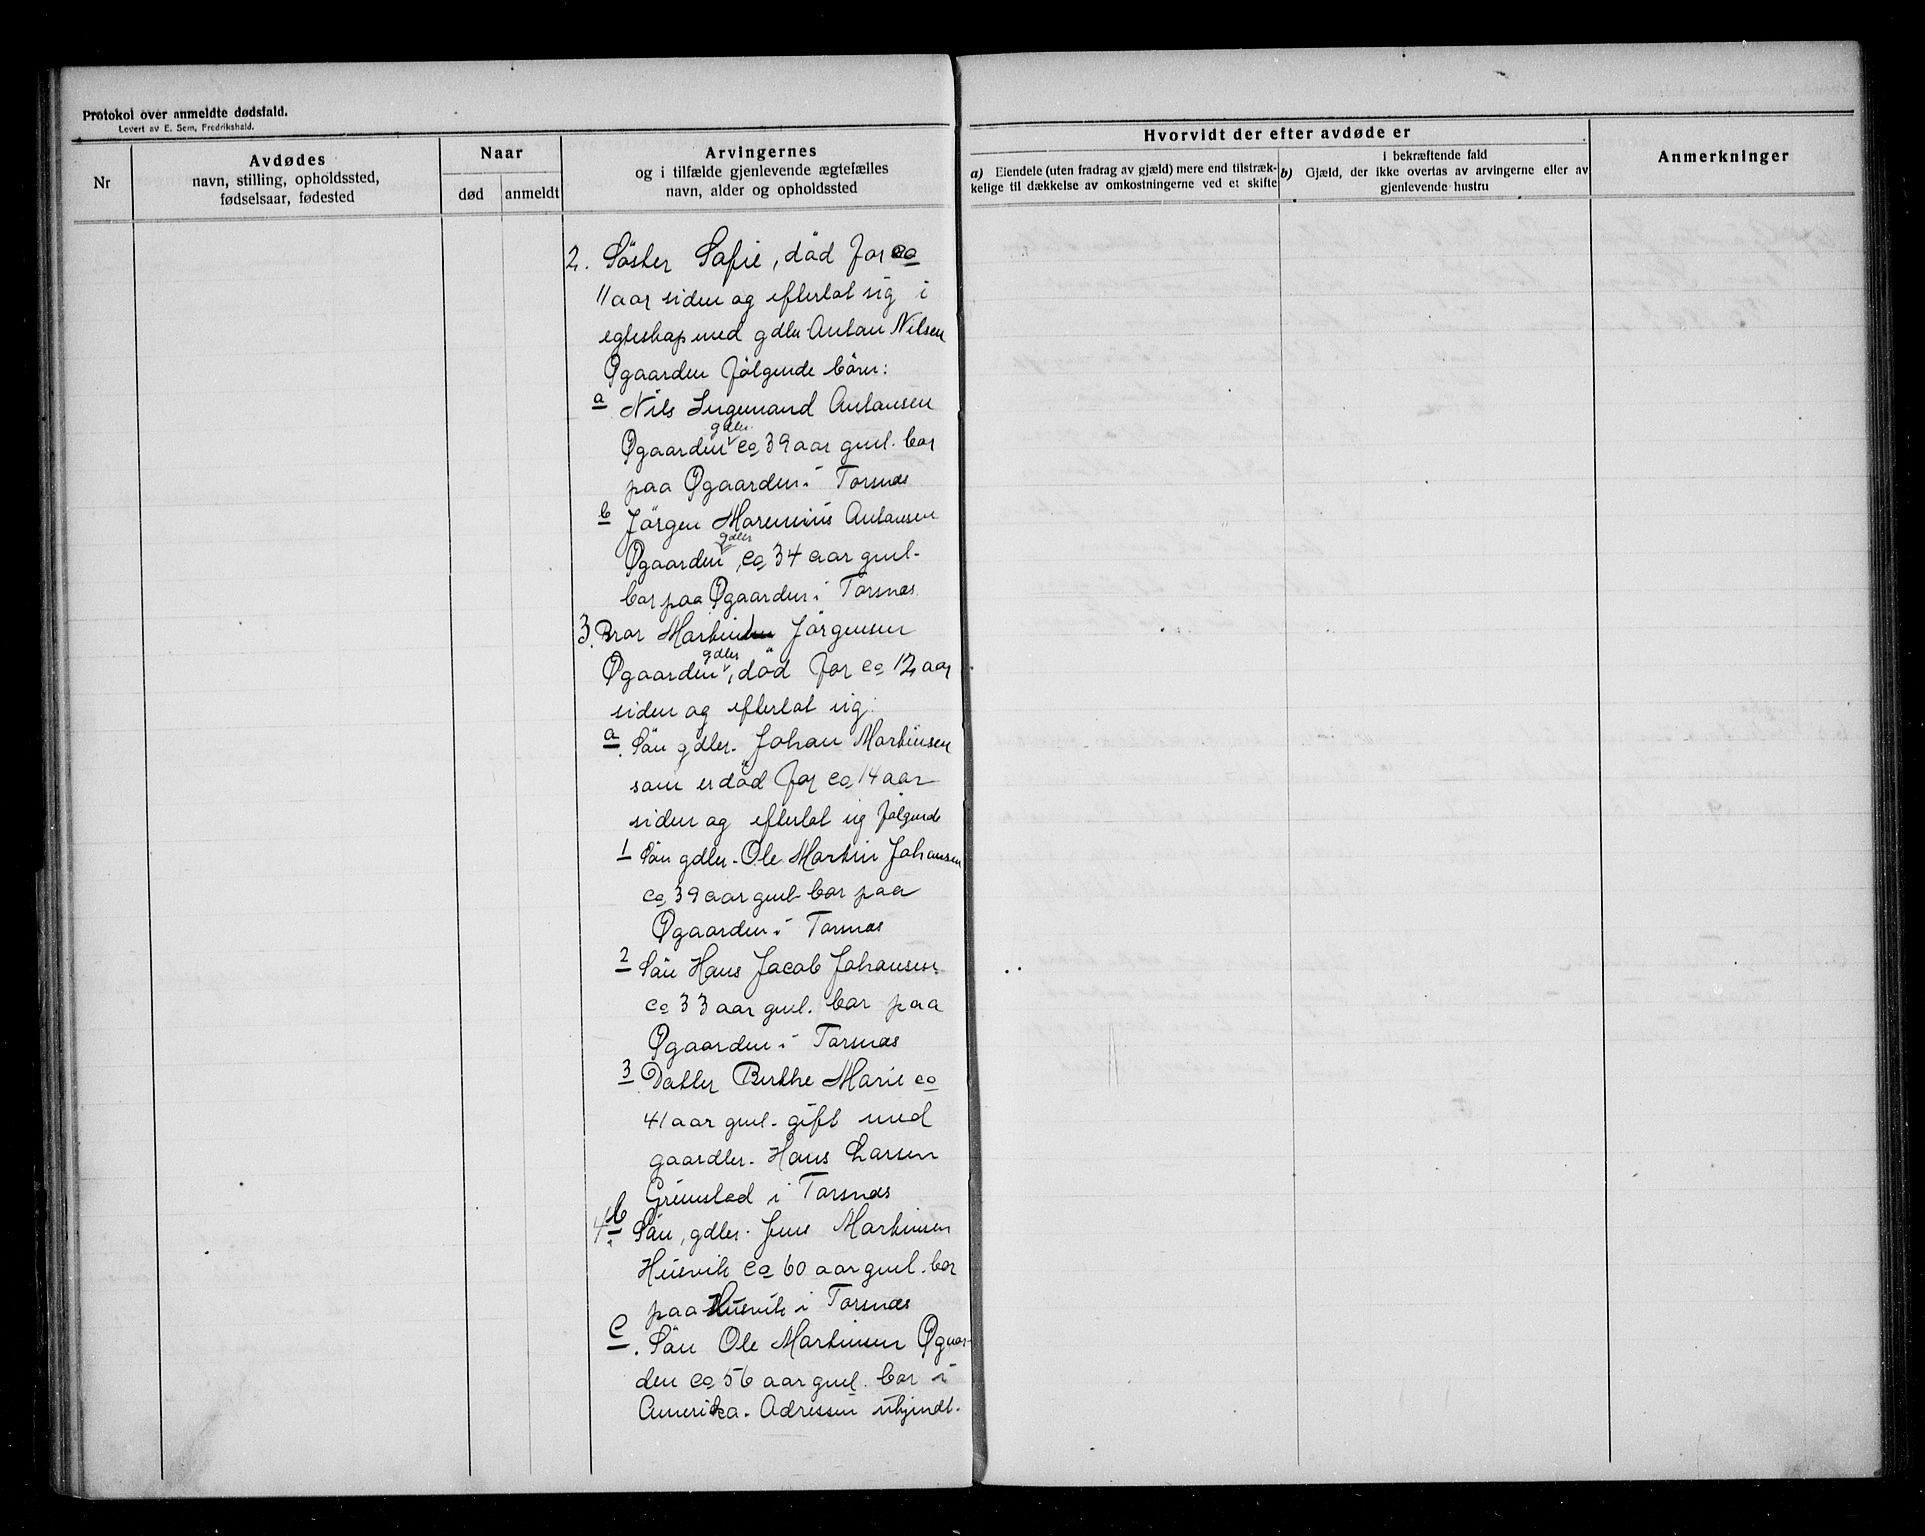 Protokol over anmeldte dødsfald.
Levert av E. Sem, Fredrikshald.
Nr
Avdødes
navn, stilling, opholdssted,
fødselsaar, fødested
Naar
død
anmeldt
Arvingernes
og i tilfælde gjenlevende ægtefælles
navn, alder og opholdssted
Hvorvidt der efter avdøde er
a) Eiendele (uten fradrag av gjæld) mere end tilstræk-
kelige til dækkelse av omkostningerne ved et skifte
i bekræftende fald
b) Gjæld, der ikke overtas av arvingerne eller av
gjenlevende hustru
Anmerkninger
2. Søster Sofie, død for ca
11 aar siden og efterlot sig i
egteskap med gdbr Anton Nilsen
Øgaarden følgende børn:
a Nils Ingemand Antonsen
gdbr.
Øgaarden ca 39 aar gml. bor
paa Øgaarden i Torsnæs
b Jørgen Marenius Antonsen
gdbr
Øgaarden, ca 34 aar gml.
bor paa Øgaarden i Torsnæs
3. Bror Martin Jørgensen
gdbr
Øgaarden, død for ca 12 aar
siden og efterlot sig:
a. Søn gdbr. Johan Martinsen
som er død for ca 14 aar
siden og efterlot sig følgende
1 Søn gdbr. Ole Martin Johansen
ca 39 aar gml bor paa
Øgaarden i Torsnæs
2 Søn Hans Jacob Johansen
ca 33 aar gml. bor paa
Øgaarden i Torsnæs
3 Datter Berthe Marie ca
41 aar gml. gift med
gaardbr. Hans Larsen
Grimstad i Torsnæs
b Søn, gdbr. Jens Martinsen
Husvik ca 60 aar gml. bor
paa Husvik i Torsnæs
c. Søn Ole Martinsen Øgaar-
den ca 56 aar gml. bor i
Amerika. Adressen ukjendt.